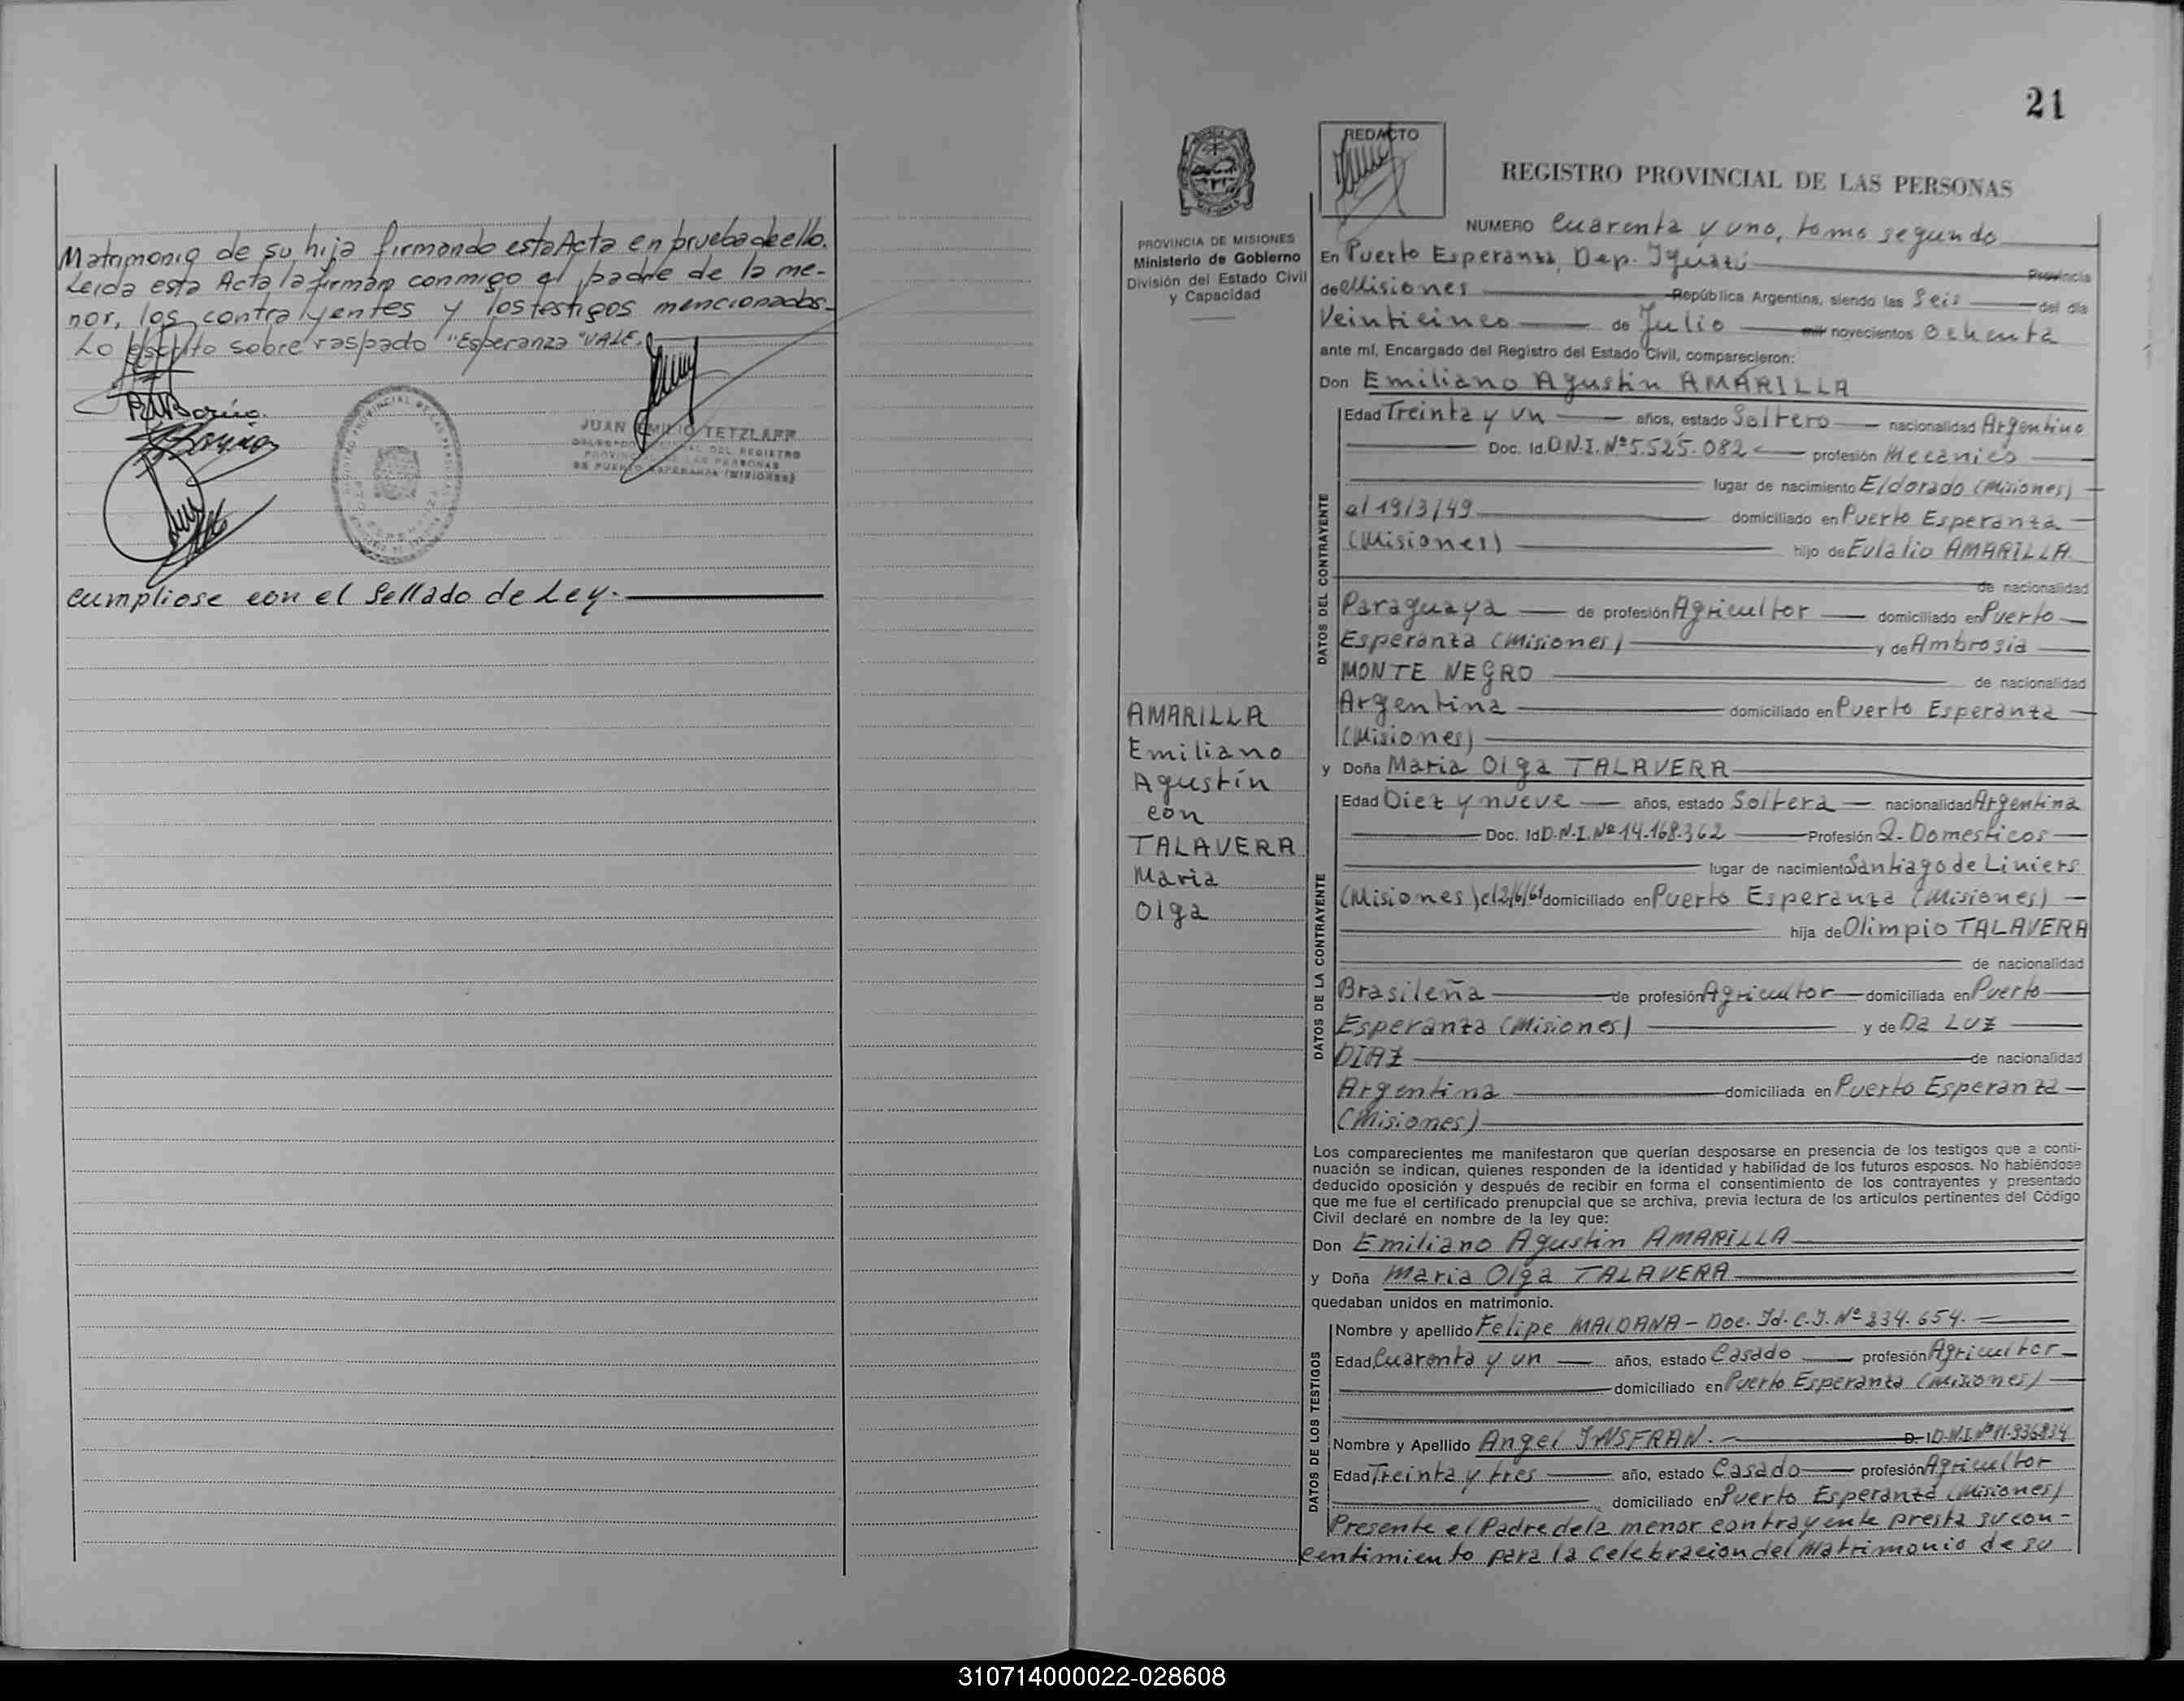 Matrimonio de su hija firmando esta Acta en prueba de ello.
Leida esta Acta la firman conmigo el padre de la me-
nor, los contrayentes y los testigos mencionados.-
Lo escrito sobre raspado "Esperanza" VALE.
JUAN EMILIO TETZLAFF
DEL REGISTRO
PROVINCIAL DE LAS PERSONAS
DE PUERTO ESPERANZA (MISIONES)
Cumpliose con el Sellado de Ley.
21
PROVINCIA DE MISIONES
Ministerio de Gobierno
División del Estado Civil
y Capacidad
AMARILLA
Emiliano
Agustín
con
TALAVERA
Maria
Olga
REDACTO
REGISTRO PROVINCIAL DE LAS PERSONAS
NUMERO Cuarenta y uno, tomo segundo
En Puerto Esperanza, Dep. Iguazú Provincia
de Misiones República Argentina, siendo las Seis del día
Veinticinco de Julio mil novecientos Ochenta
ante mí, Encargado del Registro del Estado Civil, comparecieron:
Don Emiliano Agustin AMARILLA
DATOS DEL CONTRAYENTE
Edad Treinta y un años, estado Soltero nacionalidad Argentino
Doc. Id. D.N.I. Nº 5.525.082 profesión Mecanico
lugar de nacimiento Eldorado (Misiones)
el 19/3/49 domiciliado en Puerto Esperanza
(Misiones) hijo de Eulalio AMARILLA
de nacionalidad
Paraguaya de profesión Agricultor domiciliado en Puerto
Esperanza (Misiones) y de Ambrosia
MONTE NEGRO de nacionalidad
Argentina domiciliado en Puerto Esperanza
(Misiones)
y Doña Maria Olga TALAVERA
DATOS DE LA CONTRAYENTE
Edad Diez y nueve años, estado Soltera nacionalidad Argentina
Doc. Id D.N.I. Nº 14.168.362 Profesión Q. Domesticos
lugar de nacimiento Santiago de Liniers
(Misiones) el 2/6/61 domiciliado en Puerto Esperanza (Misiones)
hija de Olimpio TALAVERA
de nacionalidad
Brasileña de profesión Agricultor domiciliada en Puerto
Esperanza (Misiones) y de Da LUZ
DIAZ de nacionalidad
Argentina domiciliada en Puerto Esperanza
(Misiones)
Los comparecientes me manifestaron que querían desposarse en presencia de los testigos que a conti-
nuación se indican, quienes responden de la identidad y habilidad de los futuros esposos. No habiéndose
deducido oposición y después de recibir en forma el consentimiento de los contrayentes y presentado
que me fue el certificado prenupcial que se archiva, previa lectura de los artículos pertinentes del Código
Civil declaré en nombre de la ley que:
Don Emiliano Agustin AMARILLA
y Doña Maria Olga TALAVERA
quedaban unidos en matrimonio.
DATOS DE LOS TESTIGOS
Nombre y apellido Felipe MAIDANA - Doc. Id. C.I. Nº 334.654.
Edad Cuarenta y un años, estado Casado profesión Agricultor
domiciliado en Puerto Esperanza (Misiones)
Nombre y Apellido Angel INSFRAN. D. I D.N.I. Nº 11.936834
Edad Treinta y tres año, estado Casado profesión Agricultor
domiciliado en Puerto Esperanza (Misiones)
Presente el Padre de la menor contrayente presta su con-
centimiento para la Celebracion del Matrimonio de su
310714000022-028608